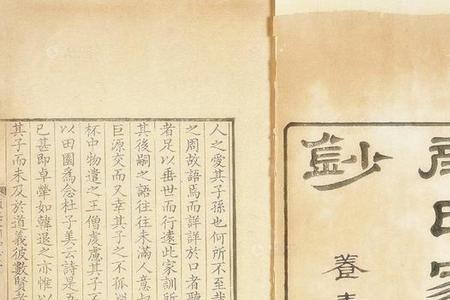 氏家
鈔
養
人之愛其子孫也何所不至哉
之周故語焉而詳詳於口者聽
者足以垂世而行遠此家訓所
其後嗣之語往往未滿人意如
巨源交而又幸其子之不孤
杯中物遺之王僧虔慮其子不
以田園為念杜子美云詩是吾
已甚即卓犖如韓退之亦惟以
其子而未及於道義彼數賢者